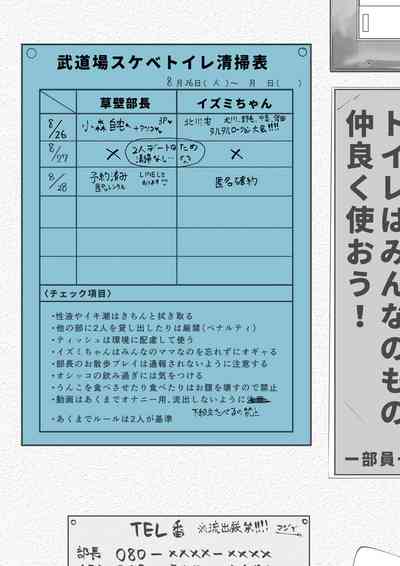 武道場スケベトイレ清掃表
8月26日(人)〜 月 日( )
草壁部長 イズミちゃん
8/26 小森 自宅 3P
8/27 × 2人デートのため清掃なし ×
8/28 予約済み LINEして 匿名確約
〈チェック項目〉
・性液やイキ潮はきちんと拭き取る
・他の部に2人を貸し出したりは厳禁(ペナルティ)
・ティッシュは環境に配慮して使う
・イズミちゃんはみんなのママなのを忘れずにオギャる
・部長のお散歩プレイは通報されないように注意する
・オシッコの飲み過ぎには気をつける
・うんこを食べさせたり食べたりはお腹を壊すので禁止
・動画はあくまでオナニー用、流出しないように
・あくまでルールは2人が基準
トイレはみんなのもの
仲良く使おう!
ー部員
TEL番 ※流出厳禁!!!! マジで
部長 080-××××-××××